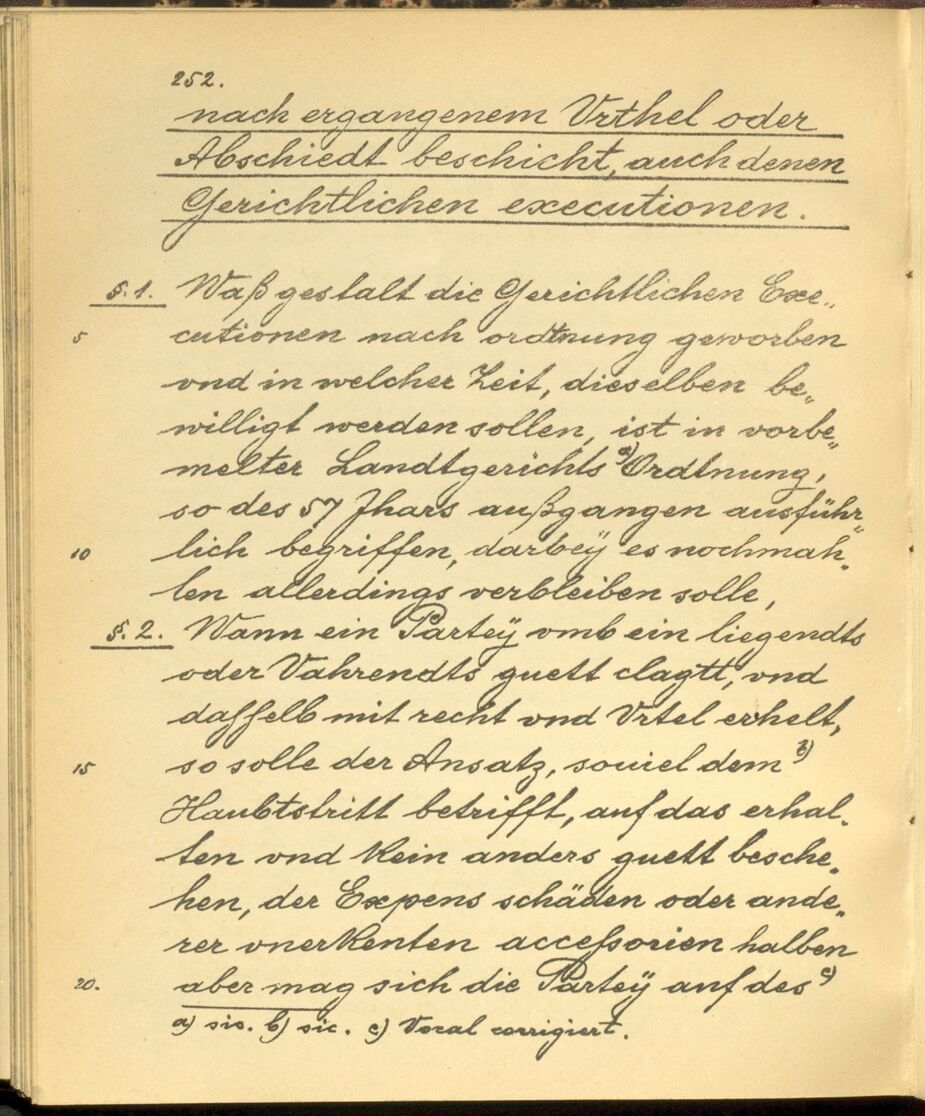 252.
nach ergangenem Vrthel oder
Abschiedt beschicht, auch denen
Gerichtlichen executionen.
§. 1. Waß gestalt die Gerichtlichen Exe„
5 cutionen nach ordtnung geworben
vnd in welcher Zeit, dieselben be„
willigt werden sollen, ist in vorbe„
melter Landtgerichts a) Ordtnung,
so des 57 Jhars außgangen ausführ„
10 lich begriffen, darbeÿ es nochmah„
len allerdings verbleiben solle,
§. 2. Wann ein Parteÿ vmb ein liegendts
oder Vahrendts guett clagtt, vnd
dasselb mit recht vnd Vrtel erhelt,
15 so solle der Ansatz, souiel dem b)
Haubtstritt betrifft, auf das erhal„
ten vnd kein anders guett besche„
hen, der Expens schäden oder ande„
rer vnerkenten accessorien halben
20. aber mag sich die Parteÿ auf des c)
a) sic. b) sic. c) Vocal corrigiert.